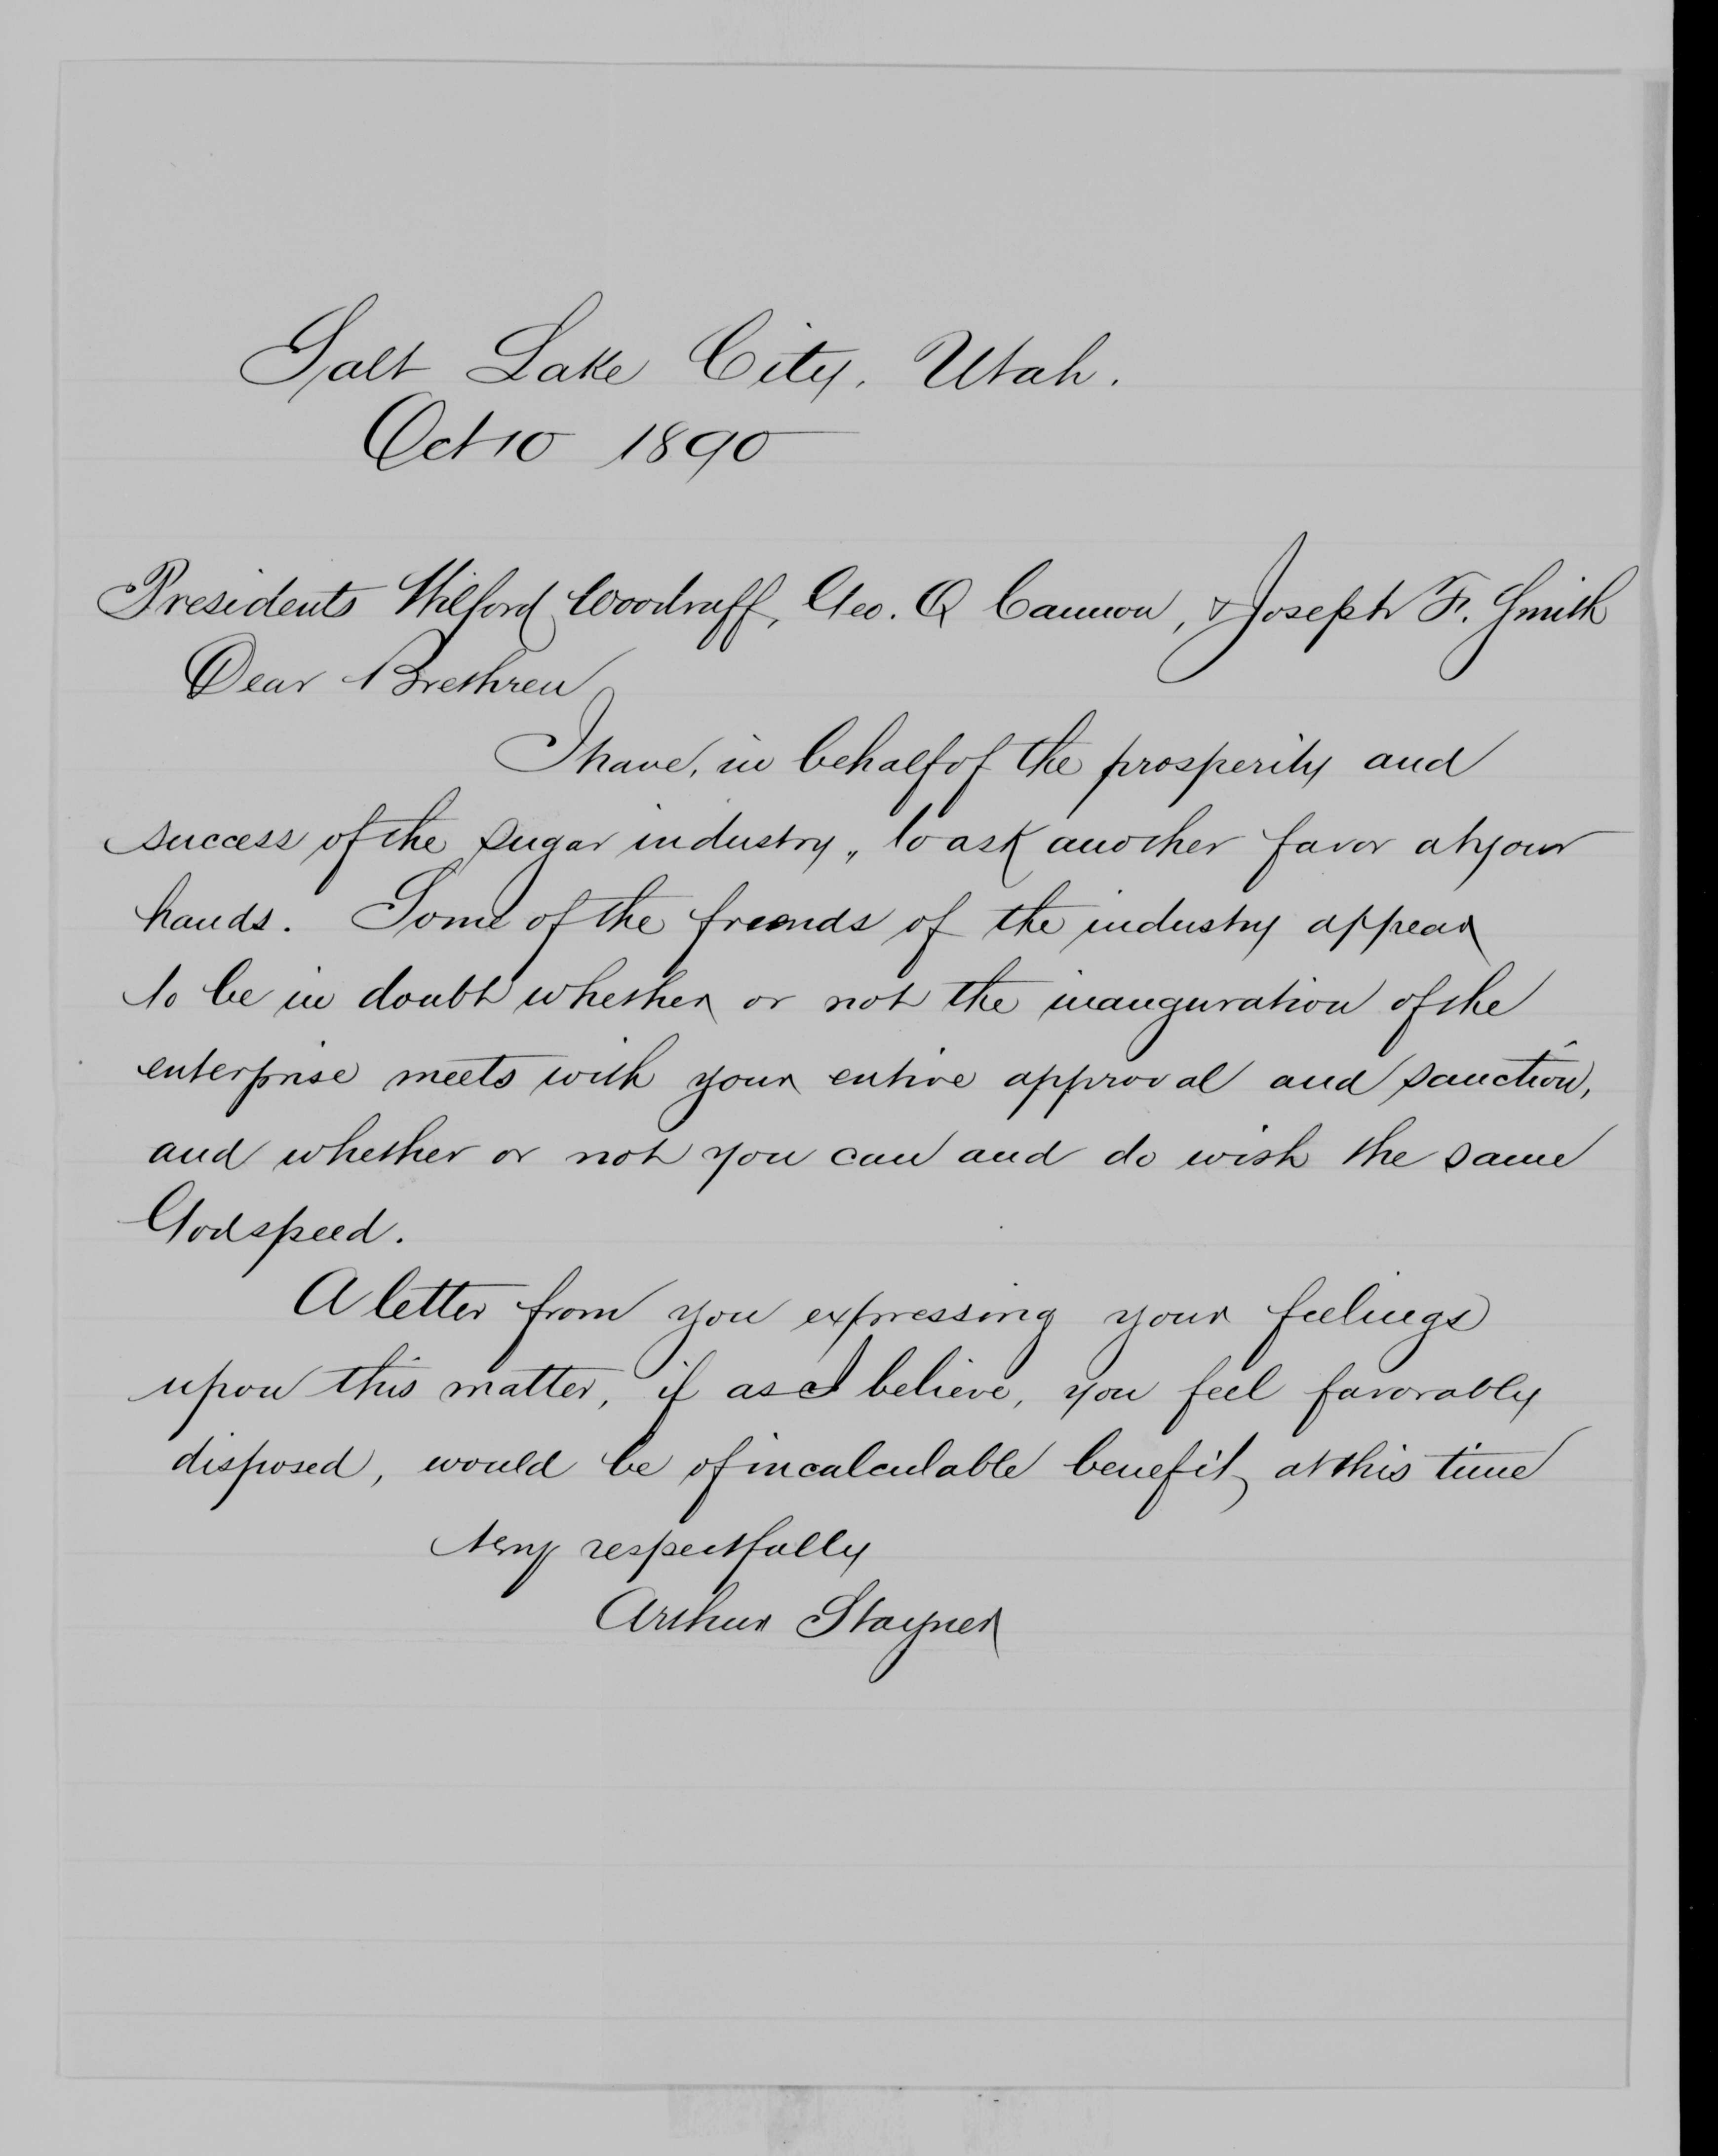 Salt Lake City, Utah.
Oct 10 1890
Presidents Wilford Woodruff, Geo. Q Cannon, & Joseph F. Smith
Dear Brethren
I have, in behalf of the prosperity and
success of the sugar industry,, to ask another favor at your
hands. Some of the friends of the industry appear
to be in doubt whether or not the inauguration of the
enterprise meets with your entire approval and sanction,
and whether or not you can and do wish the same
Godspeed.
A letter from you expressing your feelings
upon this matter, if as I believe, you feel favorably
disposed, would be of incalculable benefit, at this time
Very respectfully
Arthur Stayner